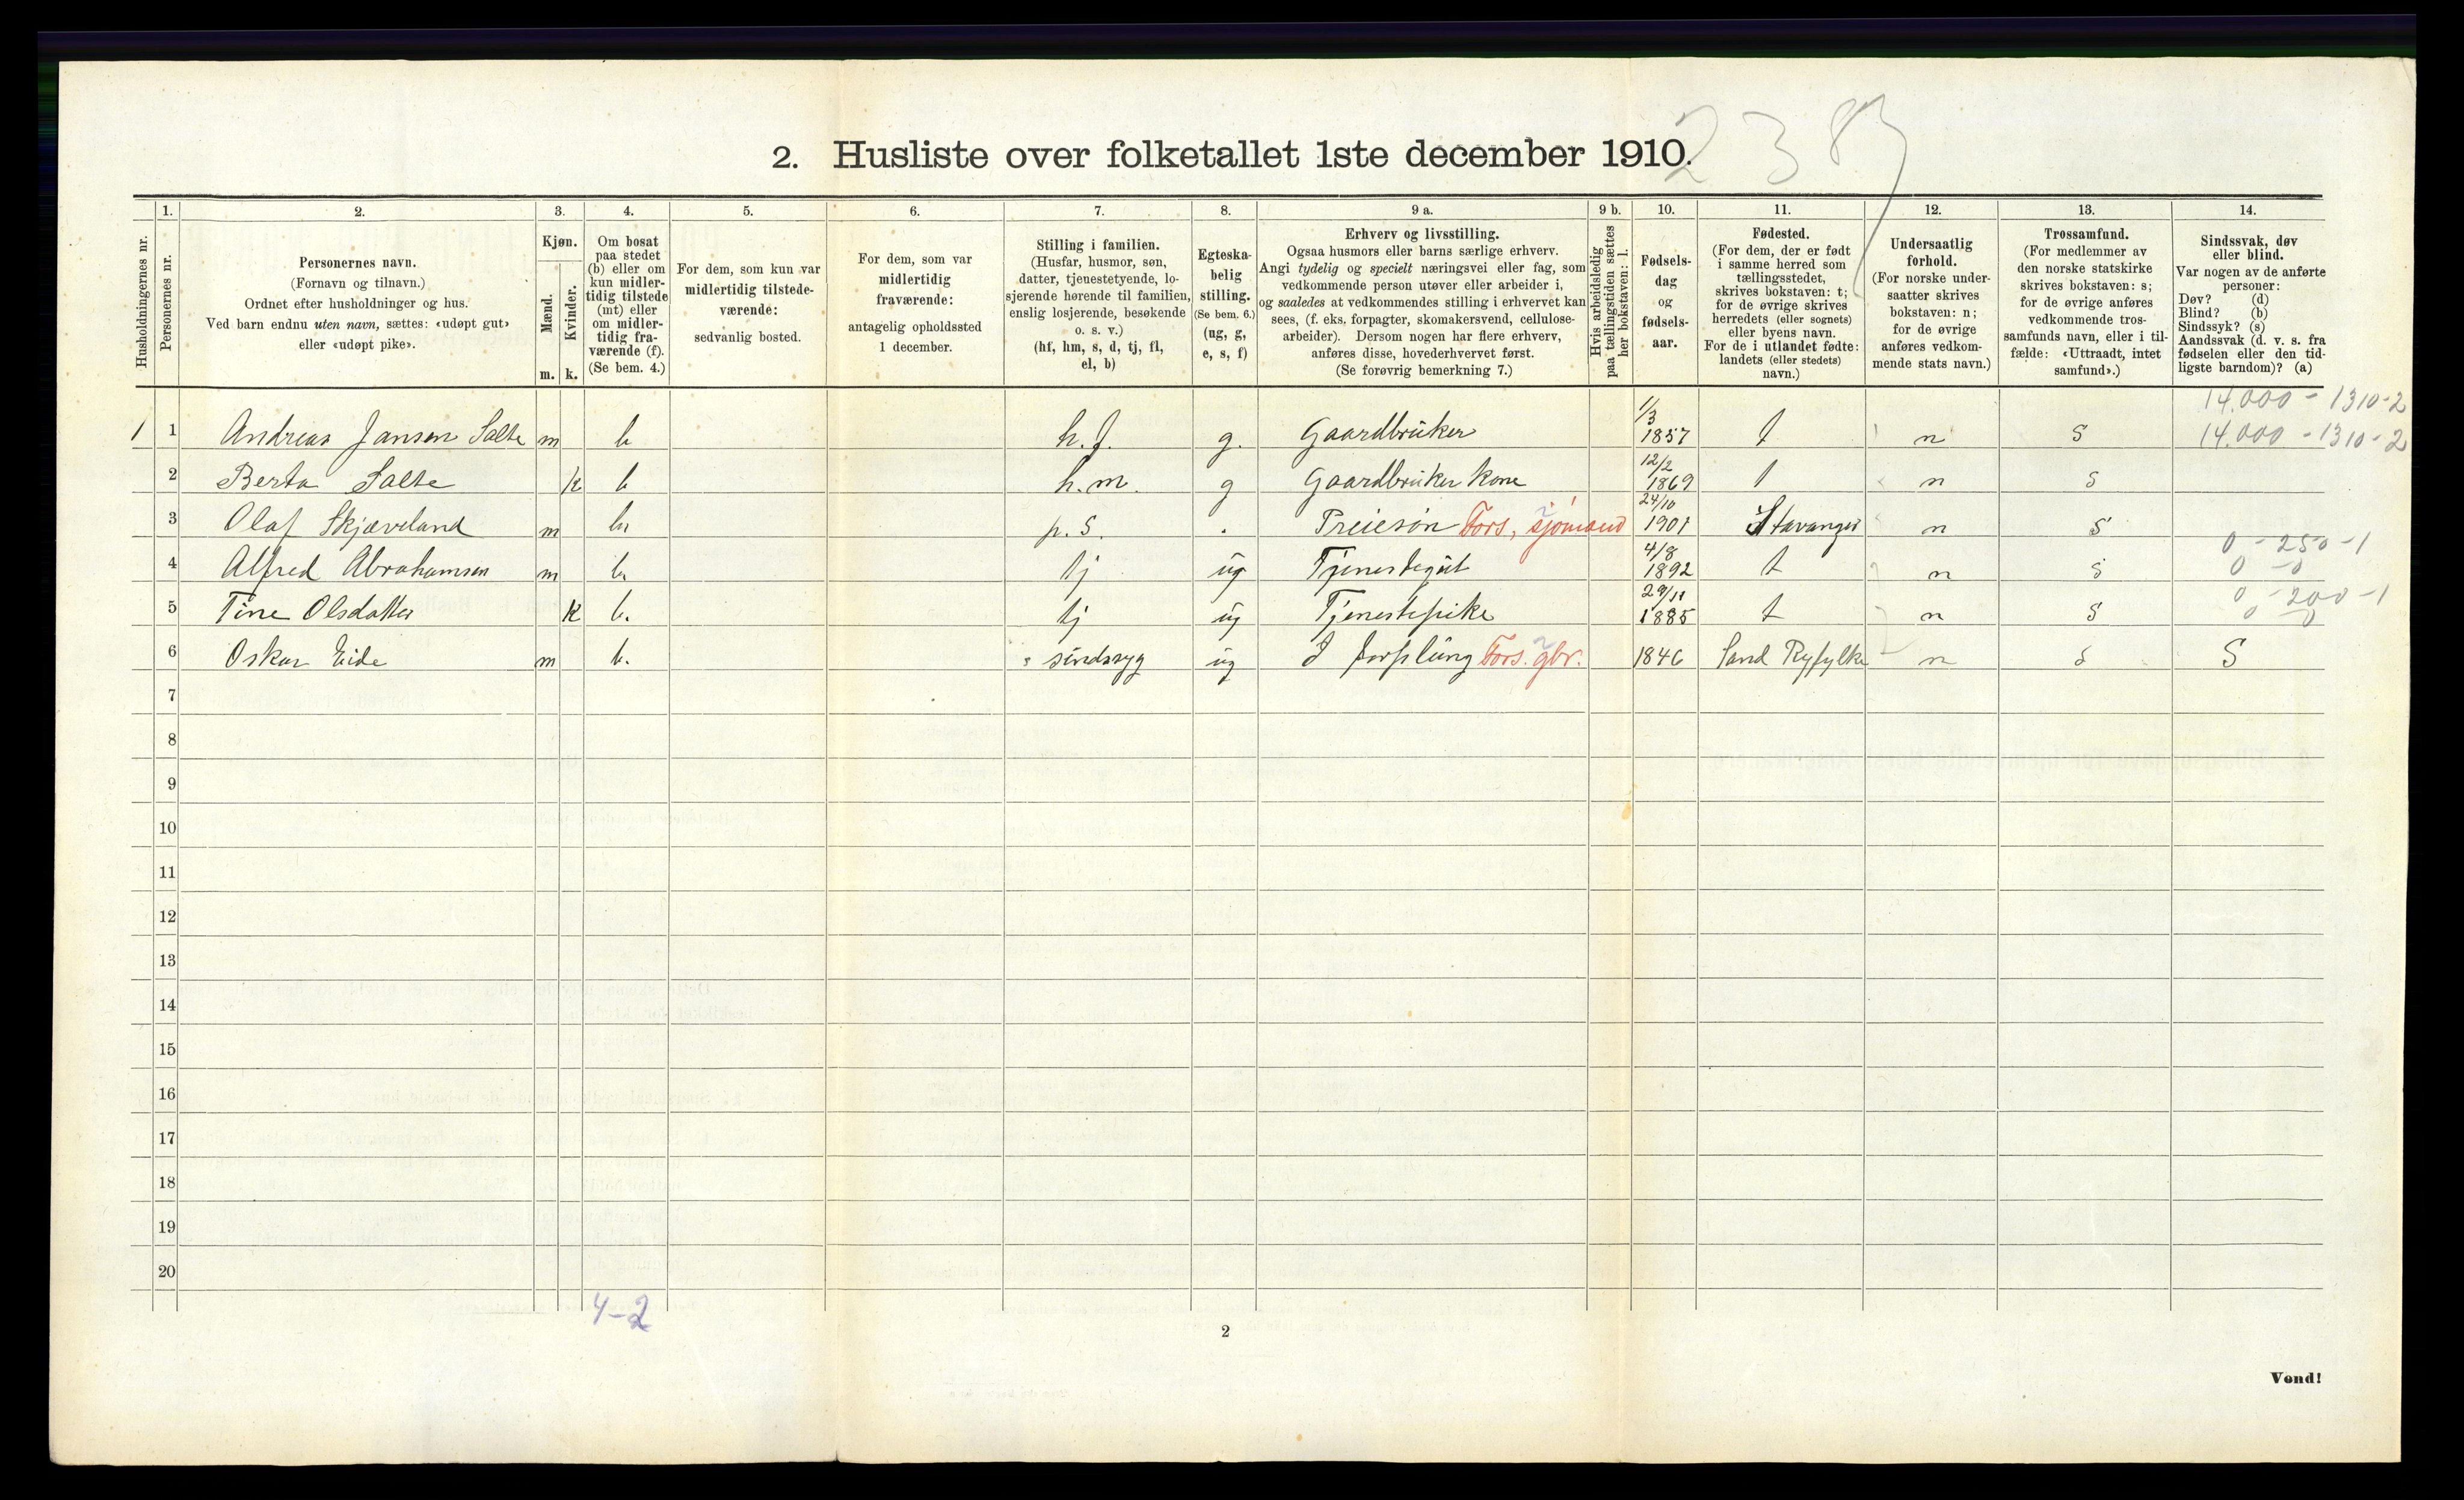 2383
2. Husliste over folketallet 1ste december 1910.
1. 2. 3. 4. 5. 6. 7. 8. 9 a. 9 b. 10. 11. 12. 13. 14.
Husholdningernes nr.
Personernes nr.
Personernes navn.
(Fornavn og tilnavn.)
Ordnet efter husholdninger og hus.
Ved barn endnu uten navn, sættes: «udøpt gut»
eller «udøpt pike».
Kjøn.
Mænd.
Kvinder.
m. k.
Om bosat
paa stedet
(b) eller om
kun midler-
tidig tilstede
(mt) eller
om midler-
tidig fra-
værende (f).
(Se bem. 4.)
For dem, som kun var
midlertidig tilstede-
værende:
sedvanlig bosted.
For dem, som var
midlertidig
fraværende:
antagelig opholdssted
1 december.
Stilling i familien.
(Husfar, husmor, søn,
datter, tjenestetyende, lo-
sjerende hørende til familien,
enslig losjerende, besøkende
o. s. v.)
(hf, hm, s, d, tj, fl,
el, b)
Egteska-
belig
stilling.
(Se bem. 6.)
(ug, g,
e, s, f)
Erhverv og livsstilling.
Ogsaa husmors eller barns særlige erhverv.
Angi tydelig og specielt næringsvei eller fag, som
vedkommende person utøver eller arbeider i,
og saaledes at vedkommendes stilling i erhvervet kan
sees, (f. eks. forpagter, skomakersvend, cellulose-
arbeider). Dersom nogen har flere erhverv,
anføres disse, hovederhvervet først.
(Se forøvrig bemerkning 7.)
Hvis arbeidsledig
paa tællingstiden sættes
her bokstaven: l.
Fødsels-
dag
og
fødsels-
aar.
Fødested.
(For dem, der er født
i samme herred som
tællingsstedet,
skrives bokstaven: t;
for de øvrige skrives
herredets (eller sognets)
eller byens navn.
For de i utlandet fødte:
landets (eller stedets)
navn.)
Undersaatlig
forhold.
(For norske under-
saatter skrives
bokstaven: n;
for de øvrige
anføres vedkom-
mende stats navn.)
Trossamfund.
(For medlemmer av
den norske statskirke
skrives bokstaven: s;
for de øvrige anføres
vedkommende tros-
samfunds navn, eller i til-
fælde: «Uttraadt, intet
samfund».)
Sindssvak, døv
eller blind.
Var nogen av de anførte
personer:
Døv? (d)
Blind? (b)
Sindssyk? (s)
Aandssvak (d. v. s. fra
fødselen eller den tid-
ligste barndom)? (a)
14.000 - 1310-2
1 1 Andreas Jansen Salte m b h.f. g. Gaardbruker 1/3 1857 t n S 14.000 - 1310-2
2 Berta Salte k b h.m. g Gaardbruker kone 12/2 1869 t n s
3 Olaf Skjæveland m b. p.s. . Preiesøn Fors, sjømand 24/10 1901 Stavanger n S
0 - 250 - 1
4 Alfred Abrahamsen m b. tj ug Tjenestegut 4/8 1892 t n s 0 - 0
0 - 200 - 1
5 Tine Olsdatter k b. tj ug Tjenestepike 29/11 1885 t n S 0 - 0
6 Oskar Eide m b. sindssyg ug I forplüng Fors. gbr. 1846 Sand Ryfylke n s S
7
8
9
10
11
12
13
14
15
16
17
18
19
20
4-2
2
Vend!